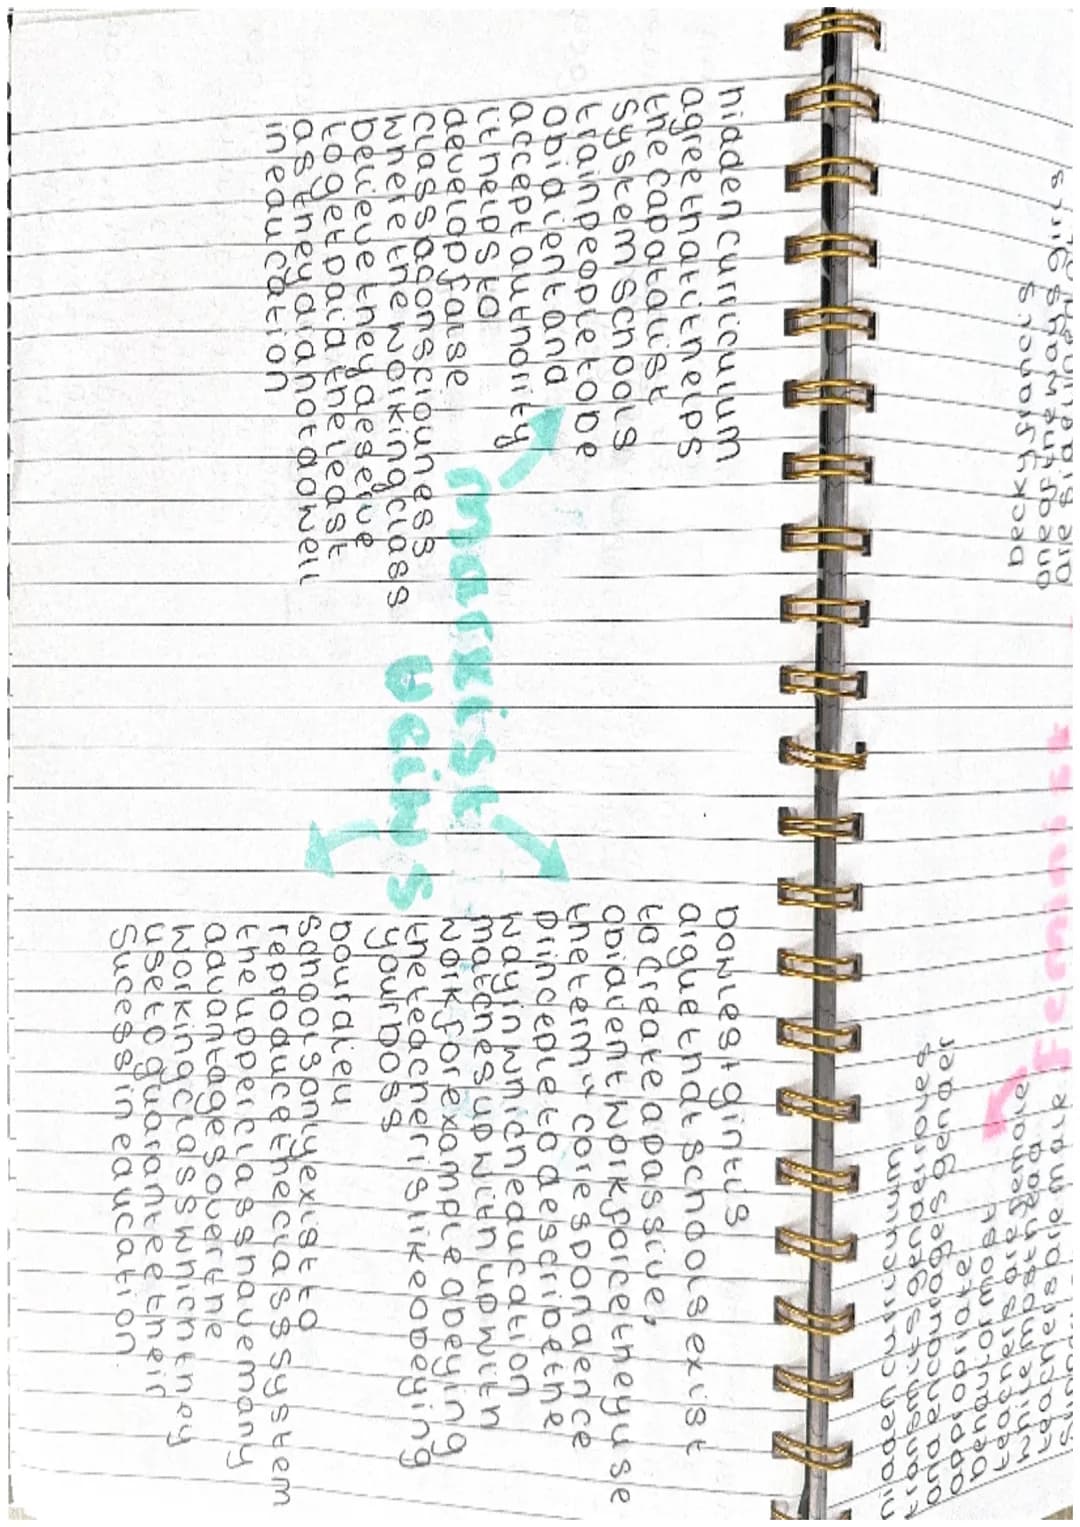 becky francis
one of the ways girls
Feminist
hidden curriculum
transmits gender roles
and encourages gender
appropriate
behaviour most
teachers are female
while most head
teachers are male
hidden curriculum
agree that it helps
the capatalist
system schools
train people to be
obidient and
accept authority
it helps to
develop false
class consciouness
where the working class
believe they deserve
to get paid the least
as they did not do well
in education
marxist
veiws
bowles + gintis
argue that schools exist
to create a passive,
obidient workforce they use
the term "corespondence
princeple to describe the
way in which education
matches up with up with
work for example obeying
the teacher is like obeying
your boss
bourdieu
schools only exist to
reproduce the class system
the upper class have many
advantages over the
working class which they
use to guarantee their
sucess in education